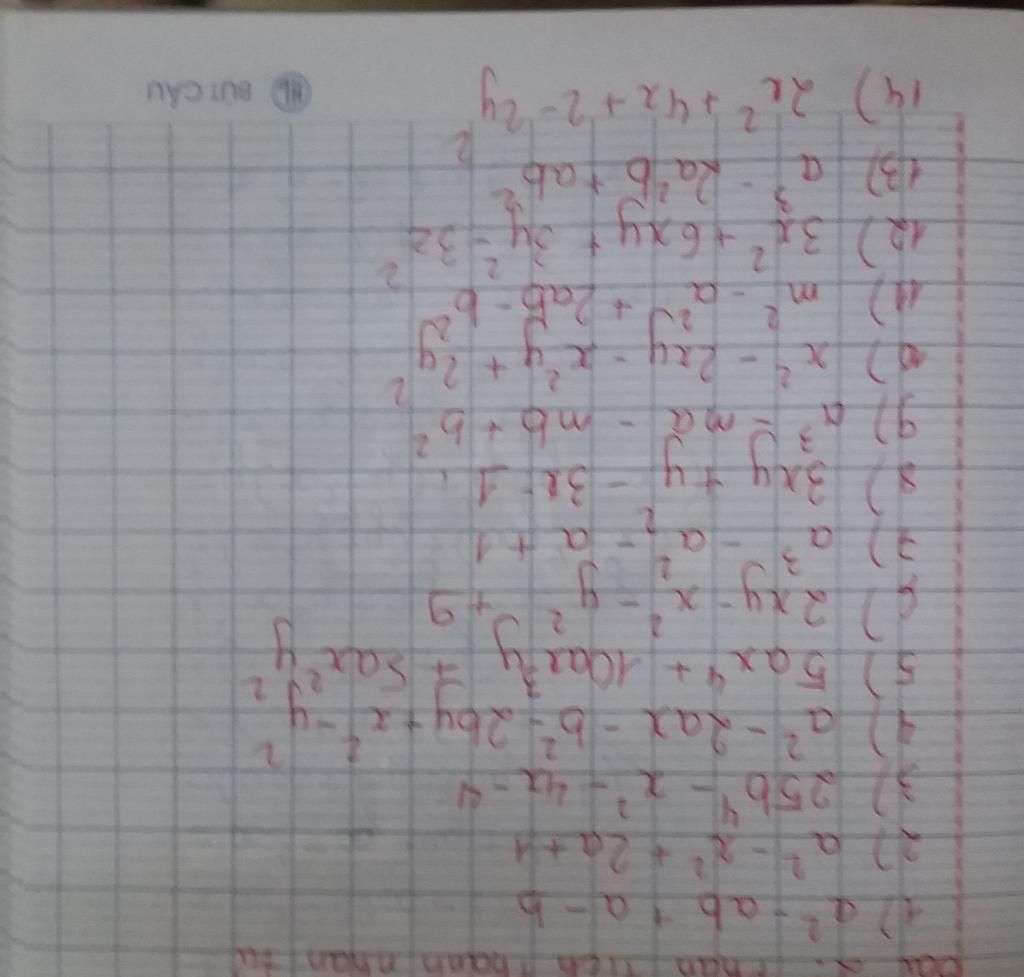 Bài 2: Phân tích thành nhân tử
1) a² - ab + a - b
2) a² - x² + 2a + 1
3) 25b⁴ - x² - 4x - 4
4) a² - 2ax - b² - 2by + x² - y²
5) 5ax⁴ + 10ax³y + 5ax²y²
6) 2xy - x² - y² + 9
7) a³ - a² - a + 1
8) 3xy + y - 3x - 1
9) a³ - ma - mb + b²
10) x² - 2xy - x²y + 2y²
11) m² - a² + 2ab - b²
12) 3x² + 6xy + 3y² - 3z²
13) a³ - 2a²b + ab²
14) 2x² + 4x + 2 - 2y²
HL BUTCAU